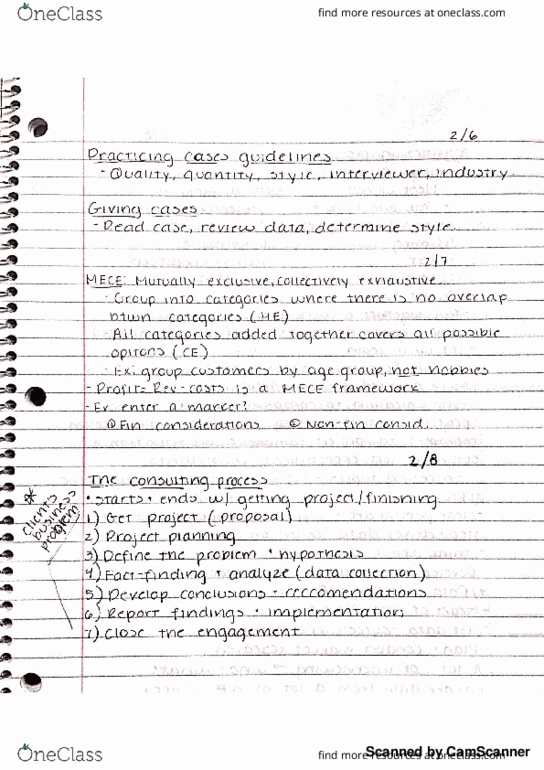 OneClass
find more resources at oneclass.com
2/6
Practicing cases guidelines
- Quality, quantity, style, interviewer, industry
Giving cases
- Read case, review data, determine style
2/7
MECE: Mutually exclusive, collectively exhaustive
· Group into categories where there is no overlap
btwn categories (ME)
· All categories added together covers all possible
options (CE)
· Ex: group customers by age group, not hobbies
- Profit = Rev - costs is a MECE framework
- Ex: enter a market?
① Fin considerations ② Non-fin consid.
2/8
The consulting process
· starts + ends w/ getting project/finishing
1) Get project (proposal)
2) Project planning
3) Define the problem + hypothesis
4) Fact-finding + analyze (data collection)
5) Develop conclusions + reccomendations
6) Report findings + implementation
7) Close the engagement
* Client's
business
problem
OneClass
find more resources at oneclass.com
Scanned by CamScanner